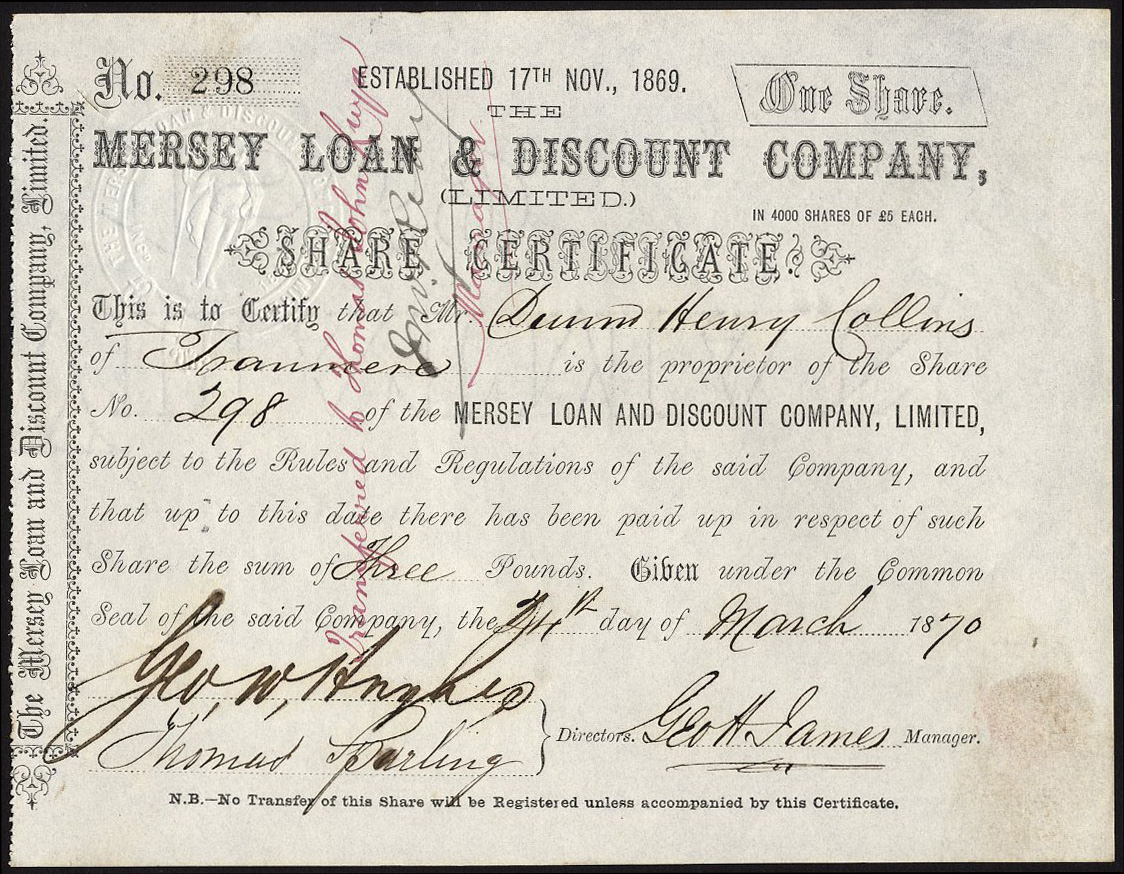 No. 298
ESTABLISHED 17TH NOV., 1869.
One Share.
THE
MERSEY LOAN & DISCOUNT COMPANY,
(LIMITED.)
IN 4000 SHARES OF £5 EACH.
SHARE CERTIFICATE.
This is to Certify that Mr. Henry Collins
of Tranmere is the proprietor of the Share
No. 298 of the MERSEY LOAN AND DISCOUNT COMPANY, LIMITED,
subject to the Rules and Regulations of the said Company, and
that up to this date there has been paid up in respect of such
Share the sum of Three Pounds. Given under the Common
Seal of the said Company, the 24th day of March 1870
Geo, W, Hughes
Thomas Sparling
Directors.
Geo H James Manager.
N.B.—No Transfer of this Share will be Registered unless accompanied by this Certificate.
The Mersey Loan and Discount Company, Limited.
Transferred to Thomas John
Manager
THE MERSEY LOAN & DISCOUNT